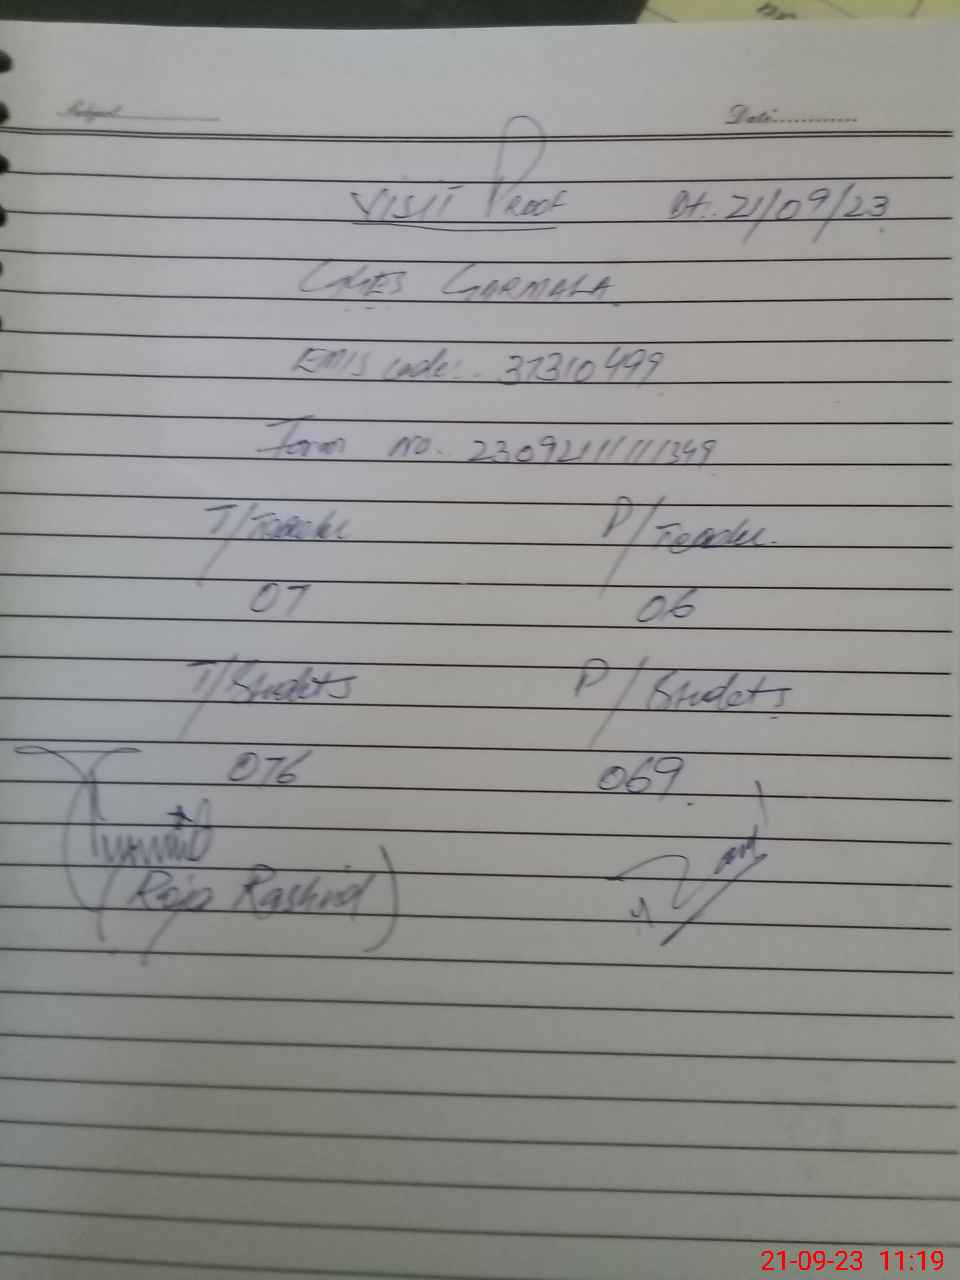 Subject............ Date:............
VISIT PROOF Dt. 21/09/23
GGES GARMALA
EMIS code:. 37310499
Form no. 230921111111349
T/Teacher P/Teacher.
07 06
T/Students P/Students
076 069.
(Raja Rashid)
21-09-23 11:19